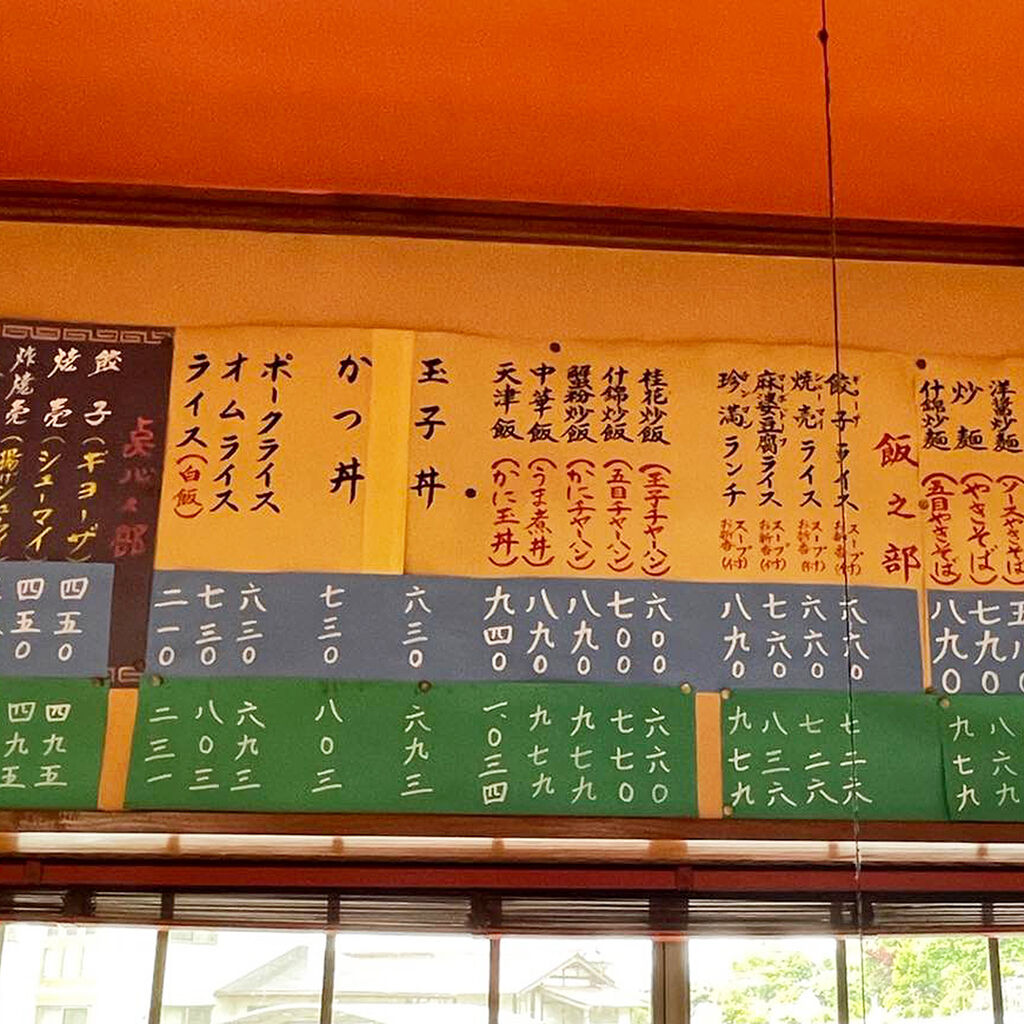 洋葱炒麺(ソースやきそば)
炒麺(やきそば)
八七〇
什錦炒麺(五目やきそば)
八九〇
九七九
飯之部
餃子ライス スープ お新香(付)
六六〇
七二六
焼売ライス スープ お新香(付)
六六〇
七二六
麻婆豆腐ライス スープ お新香(付)
七六〇
八三六
珍満ランチ スープ お新香(付)
八九〇
九七九
桂花炒飯(玉子チャーハン)
六〇〇
六六〇
什錦炒飯(五目チャーハン)
七〇〇
七七〇
蟹粉炒飯(かにチャーハン)
八九〇
九七九
中華飯(うま煮丼)
八九〇
九七九
天津飯(かに玉丼)
九四〇
一、〇三四
玉子丼
六三〇
六九三
かつ丼
七三〇
八〇三
ポークライス
六三〇
六九三
オムライス
七三〇
八〇三
ライス(白飯)
二一〇
二三一
点心之部
餃子(ギョーザ)
四五〇
四九五
焼売(シューマイ)
四五〇
四九五